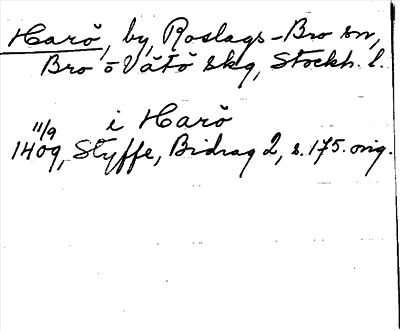 Harö, by, Roslags-Bro sn,
Bro o Vätö skg, Stockh. l.
i Harö
11/9
1409, Styffe, Bidrag 2, s. 175. orig.